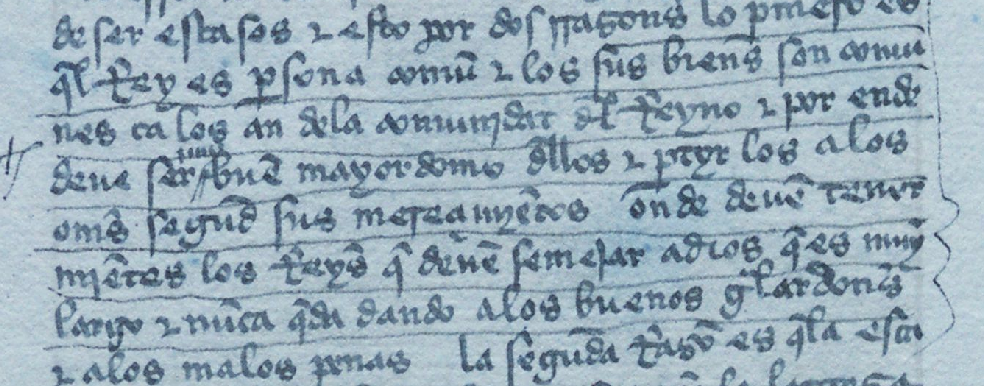 de ser escasos ⁊ esto por dos rragons lo p'mero es
q̃l Rey es p̱sona comũ ⁊ los sus biens̃ son comu
nes ca los an dela comunjdat dl̃ Reyno ⁊ por ende
deue ser muy buẽ mayordomo dl̃los ⁊ p̱tyr los a los
oms̃ segũd sus meresçimyẽtos onde deuẽ tener
mjẽtes los Reys̃ q̃ deuẽ semejar a dios q̃ es muy
largo ⁊ nũca q̃da dando a los buenos g̃lardons̃
⁊ a los malos penas la segũda Razõ es q̃ la esca